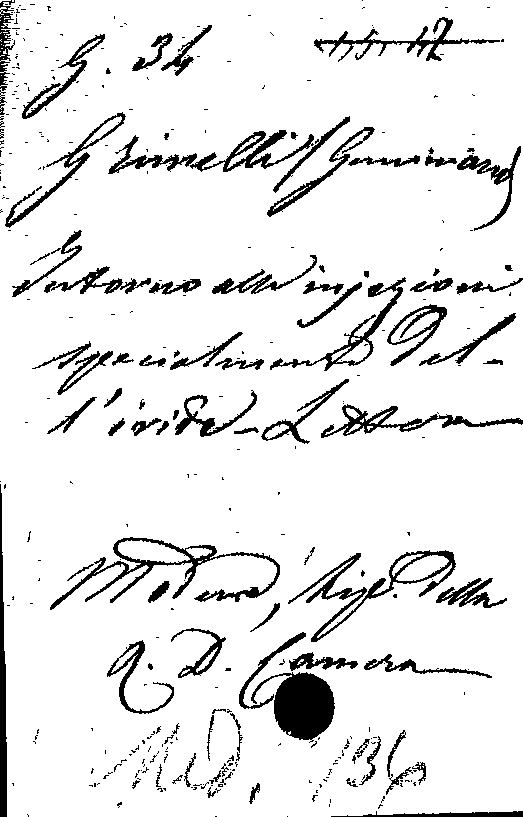 G. 34 4, 5, 47
Grimelli (Geminiano)
Intorno alle injezioni
specialmente del-
l'iride - Lettera
Modena, Tip. della
R. D. Camera
Med. 136